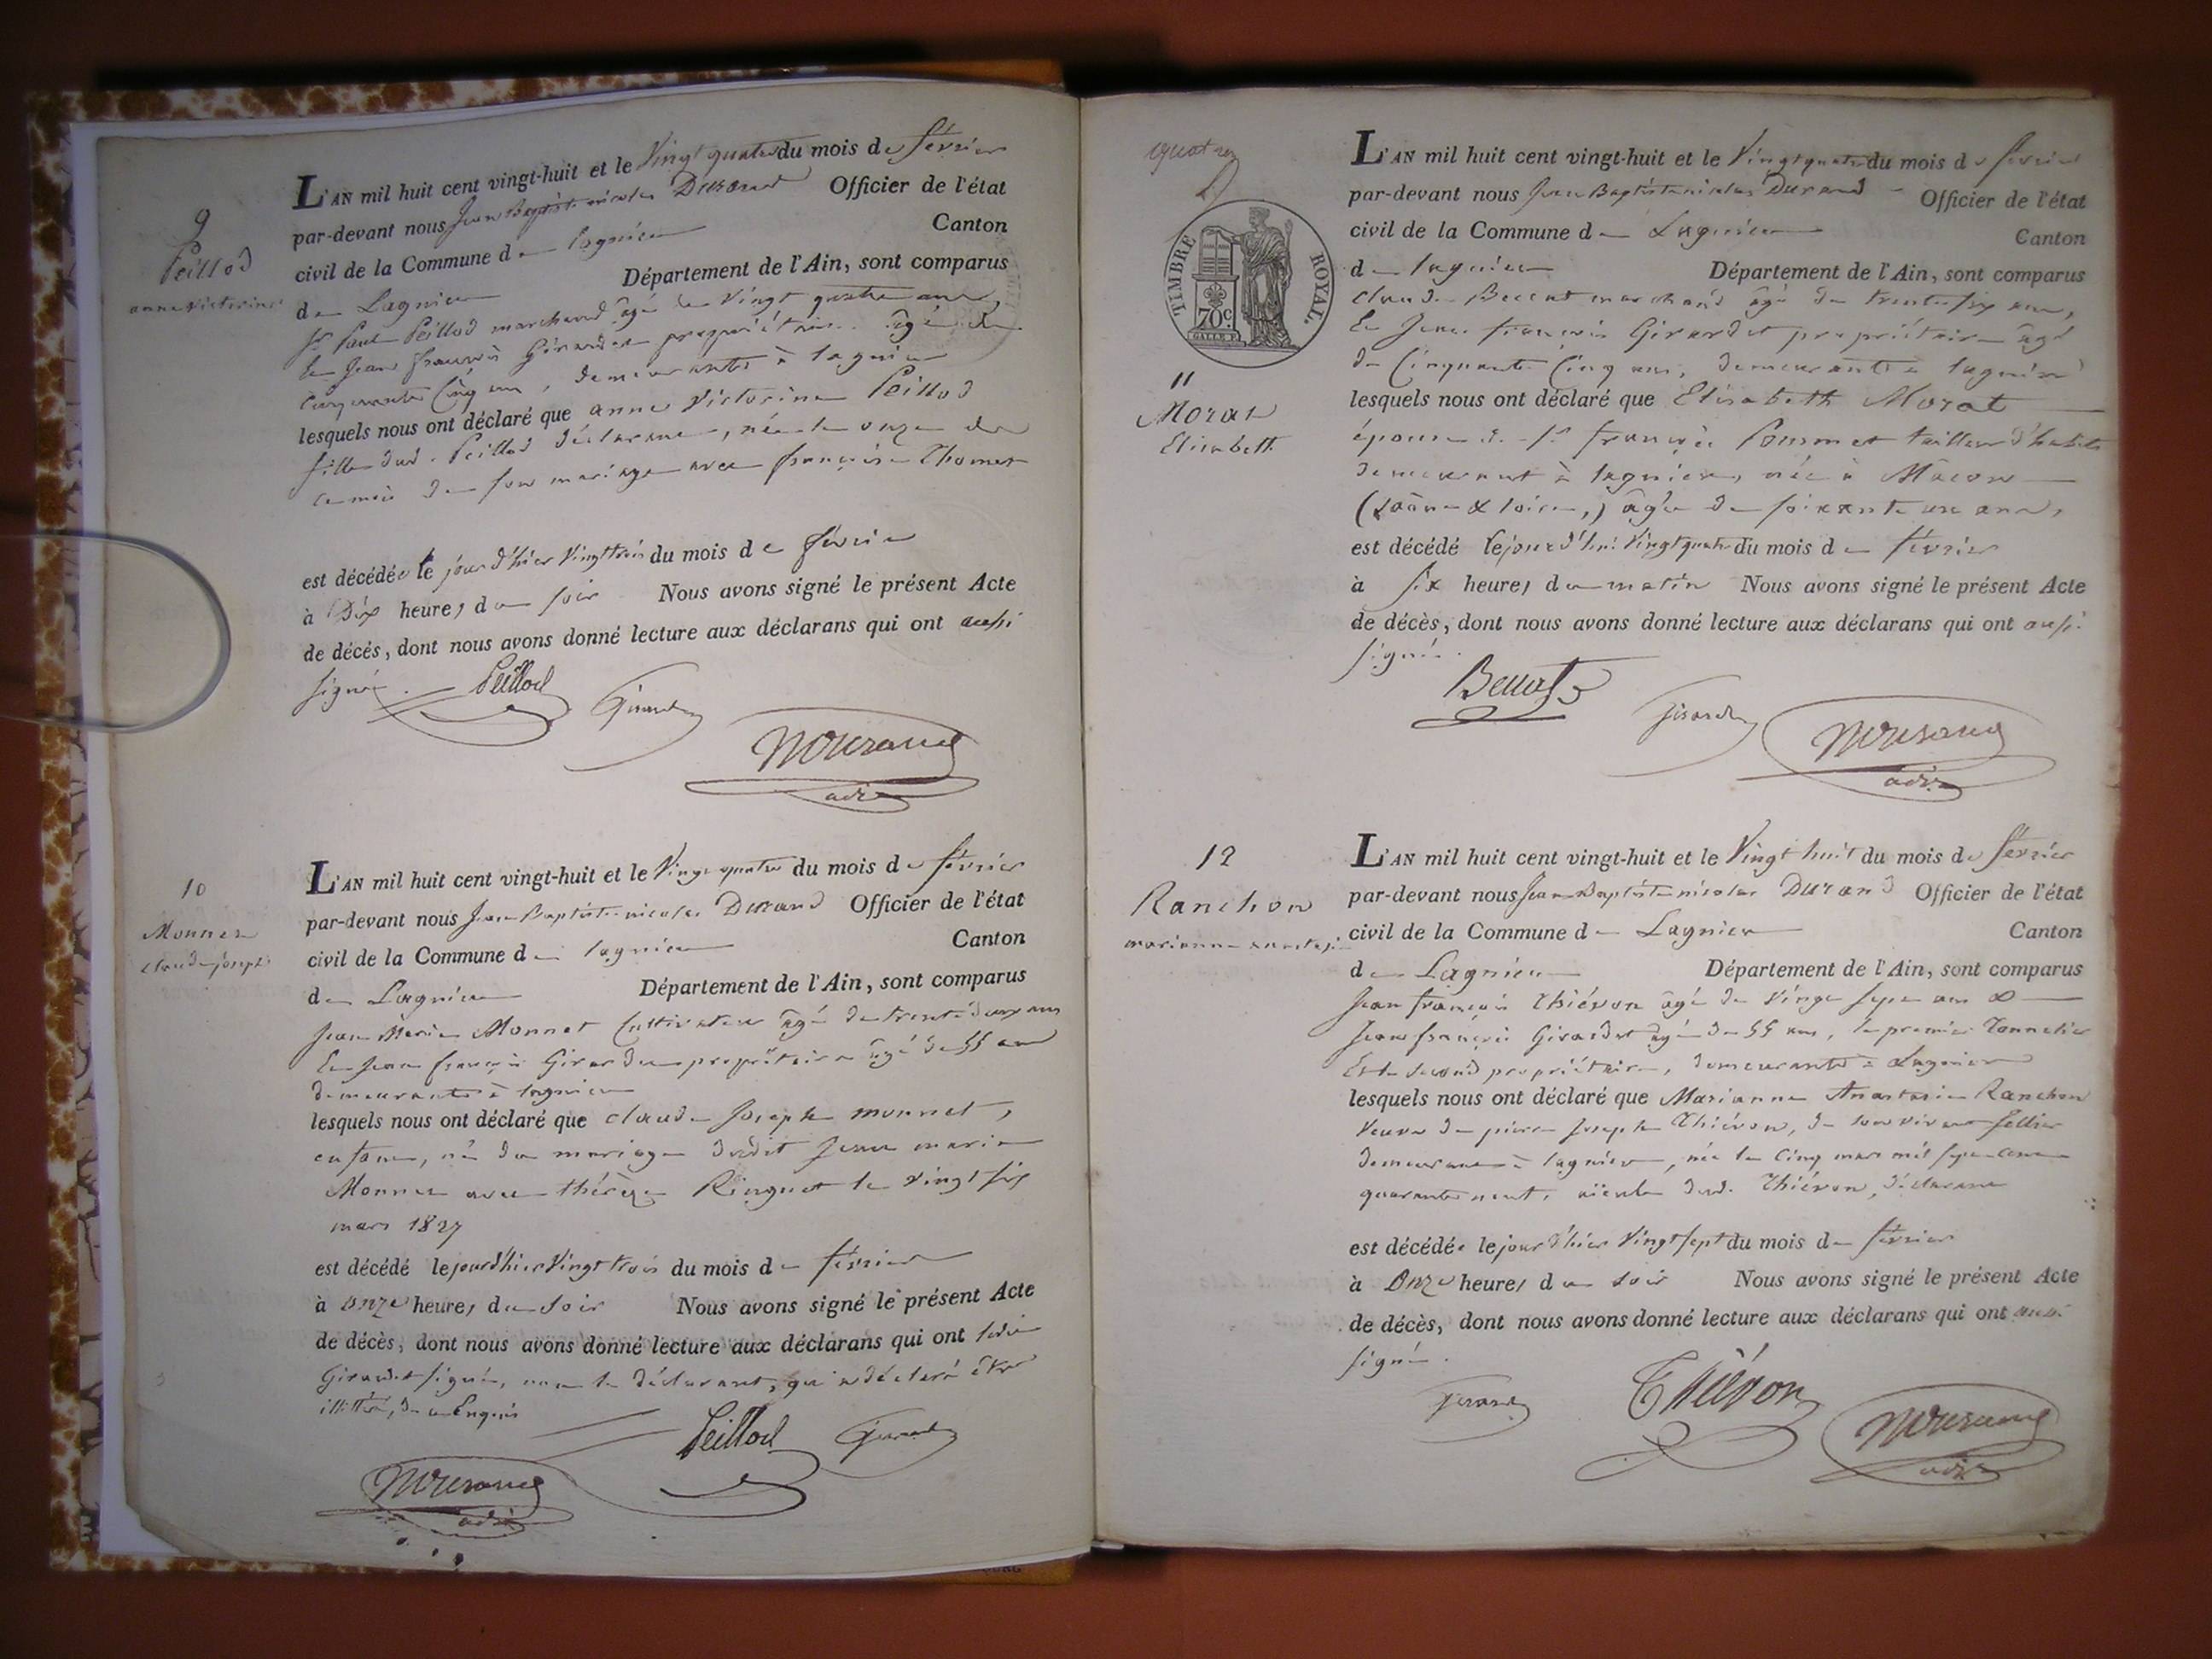 9
Peillod
anne victorine
L'AN mil huit cent vingt-huit et le Vingt quatre du mois de février
par-devant nous Jean Baptiste nicolas Durand Officier de l'état
civil de la Commune de lagnieu Canton
de Lagnieu Département de l'Ain, sont comparus
Sr Paul Peillod marchand âgé de vingt quatre ans,
Et Jean françois Girardet propriétaire âgé de
cinquante cinq ans, demeurants à lagnieu
lesquels nous ont déclaré que anne Victorine Peillod
fille dud. Peillod déclarant, née le onze de
ce mois de son mariage avec françoise Thomet
est décédée le jour d'hier vingt trois du mois de février
à Dix heures du soir Nous avons signé le présent Acte
de décés, dont nous avons donné lecture aux déclarans qui ont aussi
signé.
Peillod Girardet
NDurand
adj
10
Monnet
claude joseph
L'AN mil huit cent vingt-huit et le Vingt quatre du mois de février
par-devant nous Jean Baptiste nicolas Durand Officier de l'état
civil de la Commune de lagnieu Canton
de Lagnieu Département de l'Ain, sont comparus
Jean Marie Monnet Cultivateur âgé de trente deux ans
Et Jean françois Girardet propriétaire âgé de 55 ans
demeurants à lagnieu
lesquels nous ont déclaré que claude Joseph monnet,
enfant, né du mariage dudit Jean marie
Monnet avec thérèze Ringuet le vingt six
mars 1827
est décédé le jour d'hier Vingt trois du mois de février
à onze heures du soir Nous avons signé le présent Acte
de décès, dont nous avons donné lecture aux déclarans qui ont ledit
Girardet signé, non le déclarant, qui a déclaré être
illittéré, de ce Enquis
Peillod Girardet
NDurand
adj
quatre
D
TIMBRE ROYAL.
70c.
11
Morat
Elisabeth
L'AN mil huit cent vingt-huit et le Vingt quatre du mois de février
par-devant nous Jean Baptiste nicolas Durand Officier de l'état
civil de la Commune de Lagnieu Canton
de lagnieu Département de l'Ain, sont comparus
claude Beccat marchand âgé de trente six ans,
Et Jean françois Girardet propriétaire âgé
de Cinquante Cinq ans, demeurants à lagnieu
lesquels nous ont déclaré que Elisabeth Morat
épouse de Sr françois Pommet tailleur d'habits
demeurant à lagnieu, née à Mâcon
(Saône & loire,) âgée de soixante un ans,
est décédé le jour d'hui Vingt quatre du mois de février
à six heures du matin Nous avons signé le présent Acte
de décès, dont nous avons donné lecture aux déclarans qui ont aussi
signé.
Beccat
Girardet NDurand
adj
12
Ranchon
marianne anastasie
L'AN mil huit cent vingt-huit et le Vingt huit du mois de février
par-devant nous Jean Baptiste nicolas Durand Officier de l'état
civil de la Commune de Lagnieu Canton
de Lagnieu Département de l'Ain, sont comparus
Jean françois Thiévon âgé de vingt sept ans &
Jean françois Girardet âgé de 55 ans, le premier Tonnelier
Et le second propriétaire, demeurants à Lagnieu
lesquels nous ont déclaré que Marianne Anastasie Ranchon
Veuve de pierre Joseph Thiévon, de son vivant sellier
demeurant à lagnieu, née le Cinq mars mil sept cent
quarante neuf, aïeule dud. Thiévon, déclarant
est décédée le jour d'hier Vingt sept du mois de février
à Onze heures du soir Nous avons signé le présent Acte
de décès, dont nous avons donné lecture aux déclarans qui ont aussi
signé.
Girardet Thiévon NDurand
adj